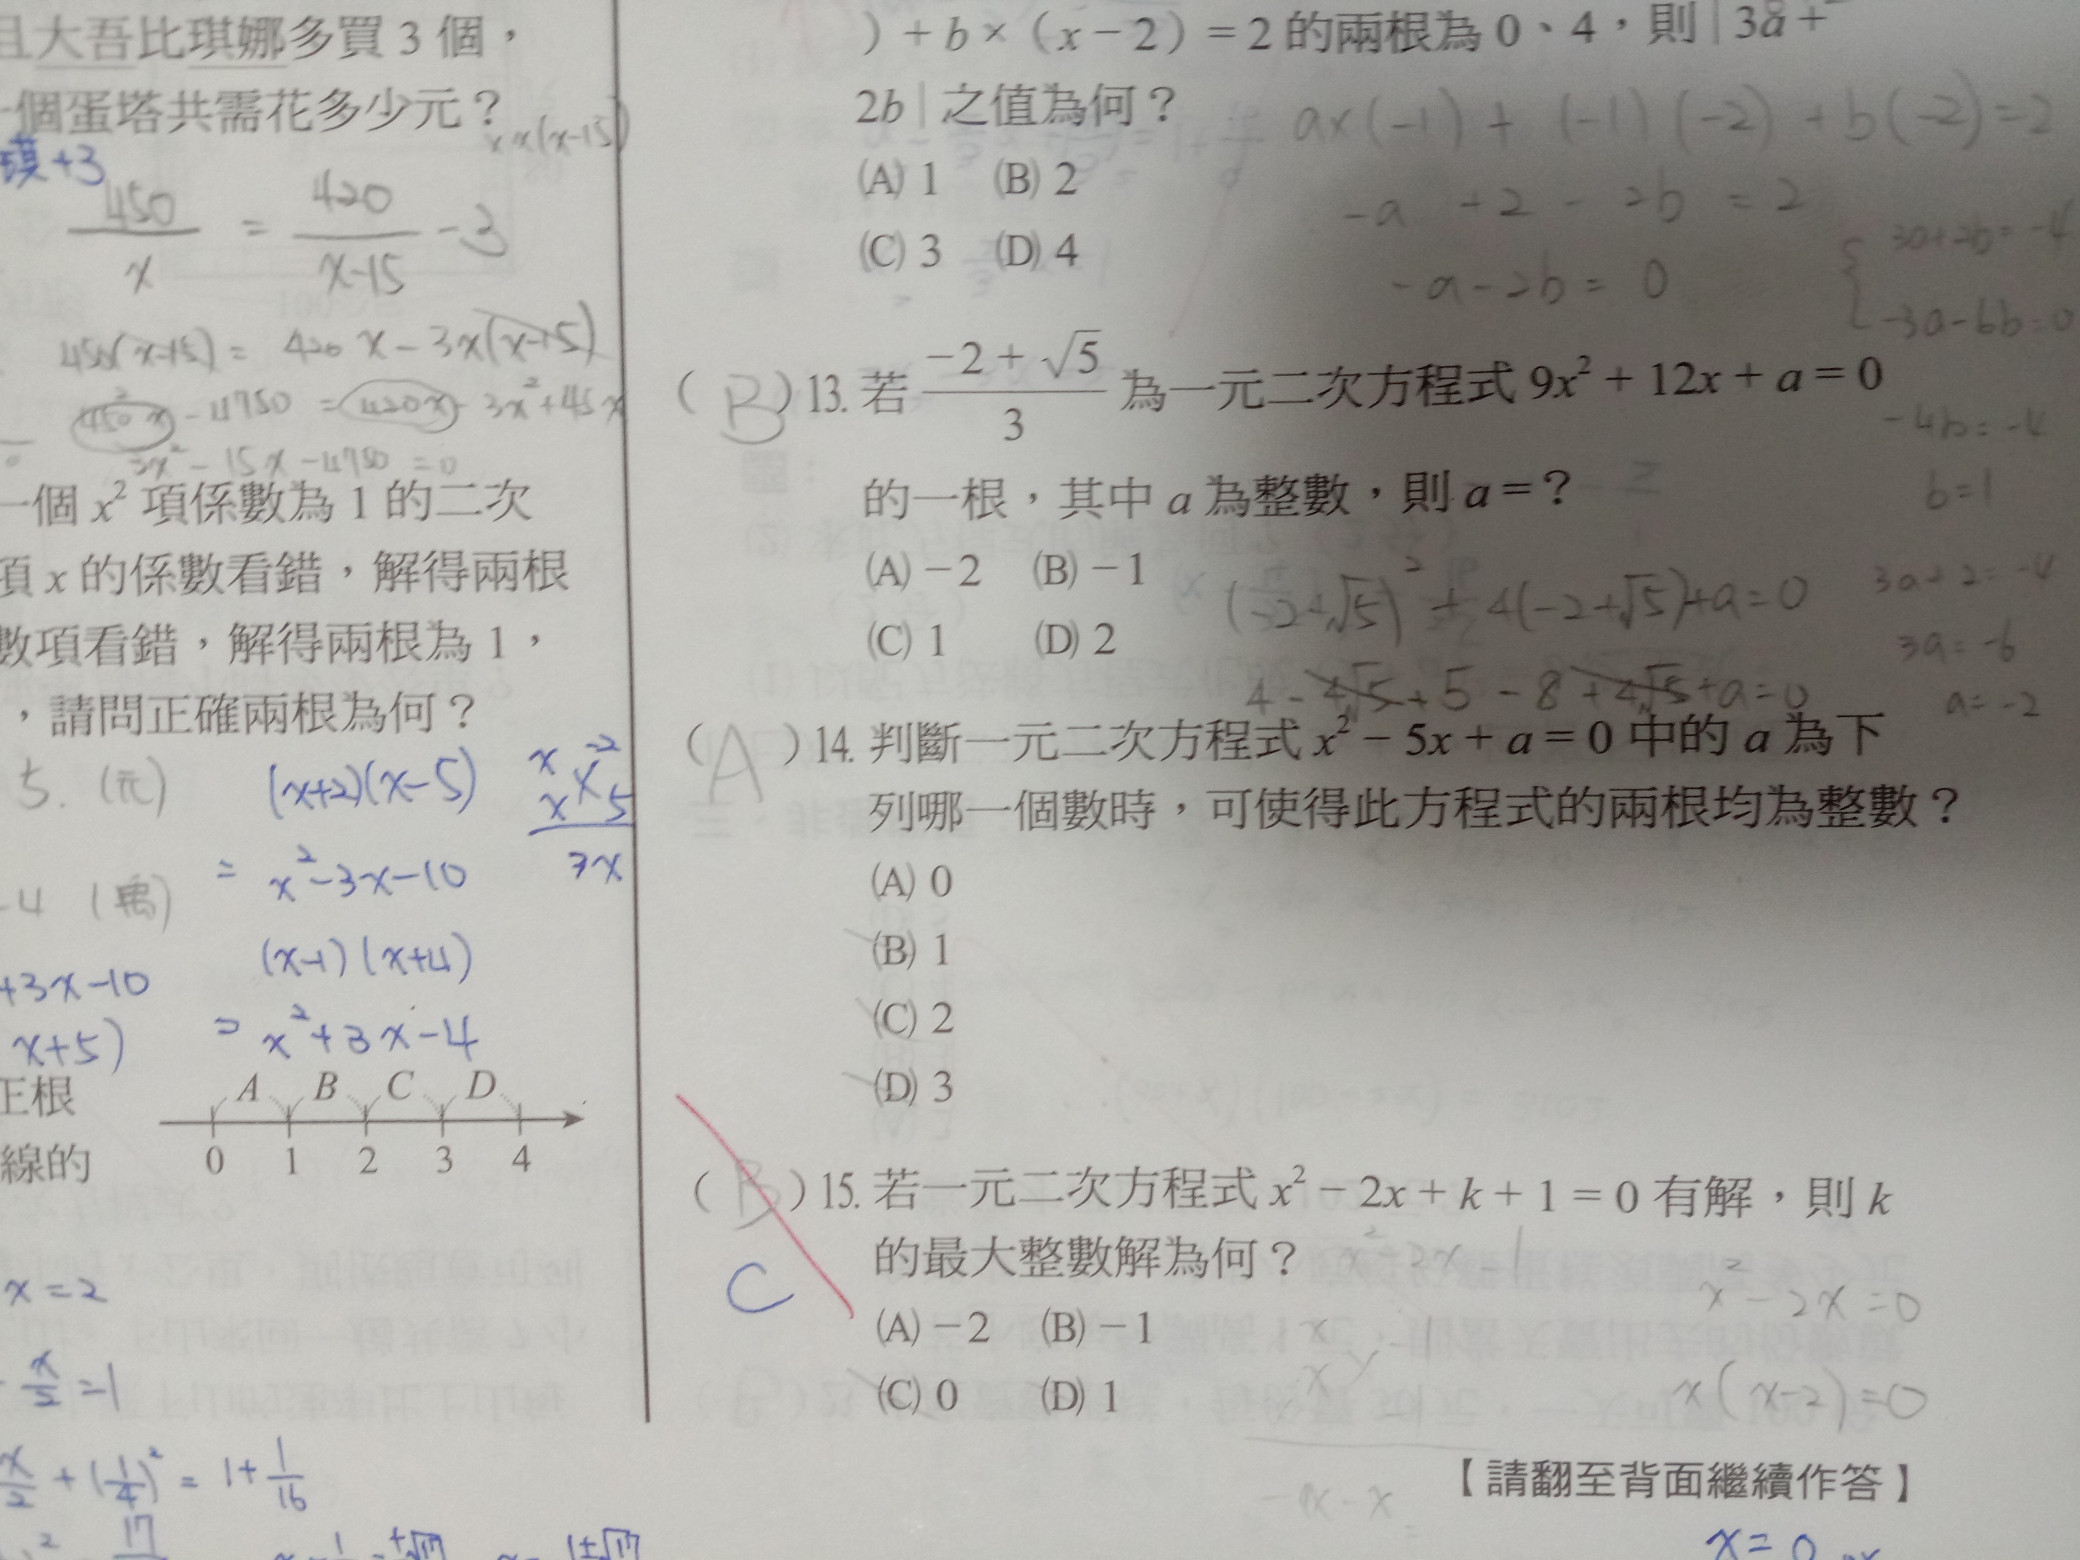 且大吾比琪娜多買 3 個，
一個蛋塔共需花多少元？
x×(x-15)
琪+3
450/x = 420/(x-15) -3
450(x-15) = 420x-3x(x-15)
450x-6750 = 420x-3x²+45x
一個 x² 項係數為 1 的二次
項 x 的係數看錯，解得兩根
數項看錯，解得兩根為 1，
，請問正確兩根為何？
(x+2)(x-5)
= x²-3x-10
(x-1)(x+4)
= x²+3x-4
x -2
x 5
3x
+3x-10
x+5)
正根
A B C D
0 1 2 3 4
線的
x=2
x/2 =1
x/2 + (1/4)² = 1+ 1/16
) + b × ( x − 2 ) = 2 的兩根為 0、4，則 | 3a +
2b | 之值為何？
(A) 1 (B) 2
(C) 3 (D) 4
ax(-1) + (-1)(-2) + b(-2)=2
-a +2 - 2b = 2
-a-2b = 0
3a+2b=-4
-3a-6b=0
-4b=-4
b=1
3a+2=-4
3a=-6
a=-2
( B ) 13. 若 (−2 + √5)/3 為一元二次方程式 9x² + 12x + a = 0
的一根，其中 a 為整數，則 a = ？
(A) − 2 (B) − 1
(C) 1 (D) 2
(-2+√5)² + 4(-2+√5)+a=0
4-4√5+5-8+4√5+a=0
( A ) 14. 判斷一元二次方程式 x² − 5x + a = 0 中的 a 為下
列哪一個數時，可使得此方程式的兩根均為整數？
(A) 0
(B) 1
(C) 2
(D) 3
( B ) 15. 若一元二次方程式 x² − 2x + k + 1 = 0 有解，則 k
的最大整數解為何？
C
(A) − 2 (B) − 1
(C) 0 (D) 1
x²-2x=0
x(x-2)=0
【請翻至背面繼續作答】
x=0